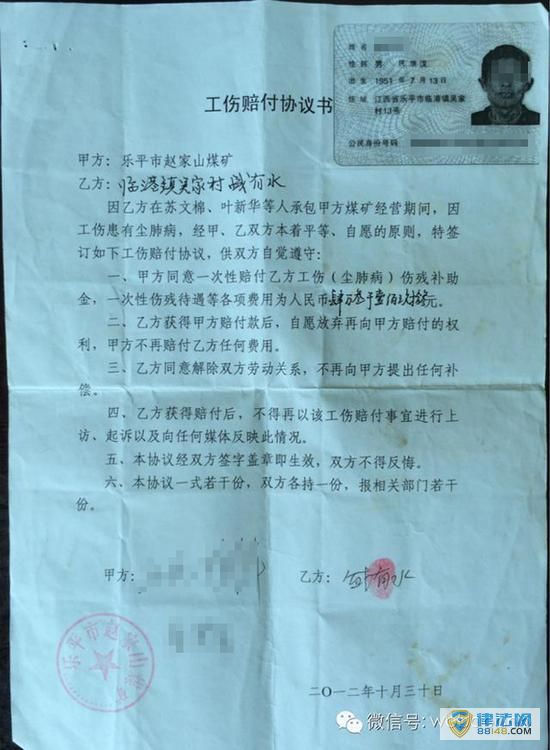 姓名
性别 男 民族 汉
出生 1951 年 7 月 13 日
住址 江西省乐平市临港镇吴家
村13号
公民身份号码
工伤赔付协议书
甲方：乐平市赵家山煤矿
乙方：临港镇吴家村 有水
因乙方在苏文棉、叶新华等人承包甲方煤矿经营期间，因
工伤患有尘肺病，经甲、乙双方本着平等、自愿的原则，特签
订如下工伤赔付协议，供双方自觉遵守：
一、甲方同意一次性赔付乙方工伤（尘肺病）伤残补助
金，一次性伤残待遇等各项费用为人民币 元。
二、乙方获得甲方赔付款后，自愿放弃再向甲赔付的权
利，甲方不再赔付乙方任何费用。
三、乙方同意解除双方劳动关系，不再向甲方提出任何补
偿。
四、乙方获得赔付后，不得再以该工伤赔付事宜进行上
访、起诉以及向任何媒体反映此情况。
五、本协议经双方签字盖章即生效，双方不得反悔。
六、本协议一式若干份，双方各持一份，报相关部门若干
份。
甲方：
乙方： 有水
乐平市赵家山煤矿
二〇一二年十月三十日
微信号: w
律法网
88148.com